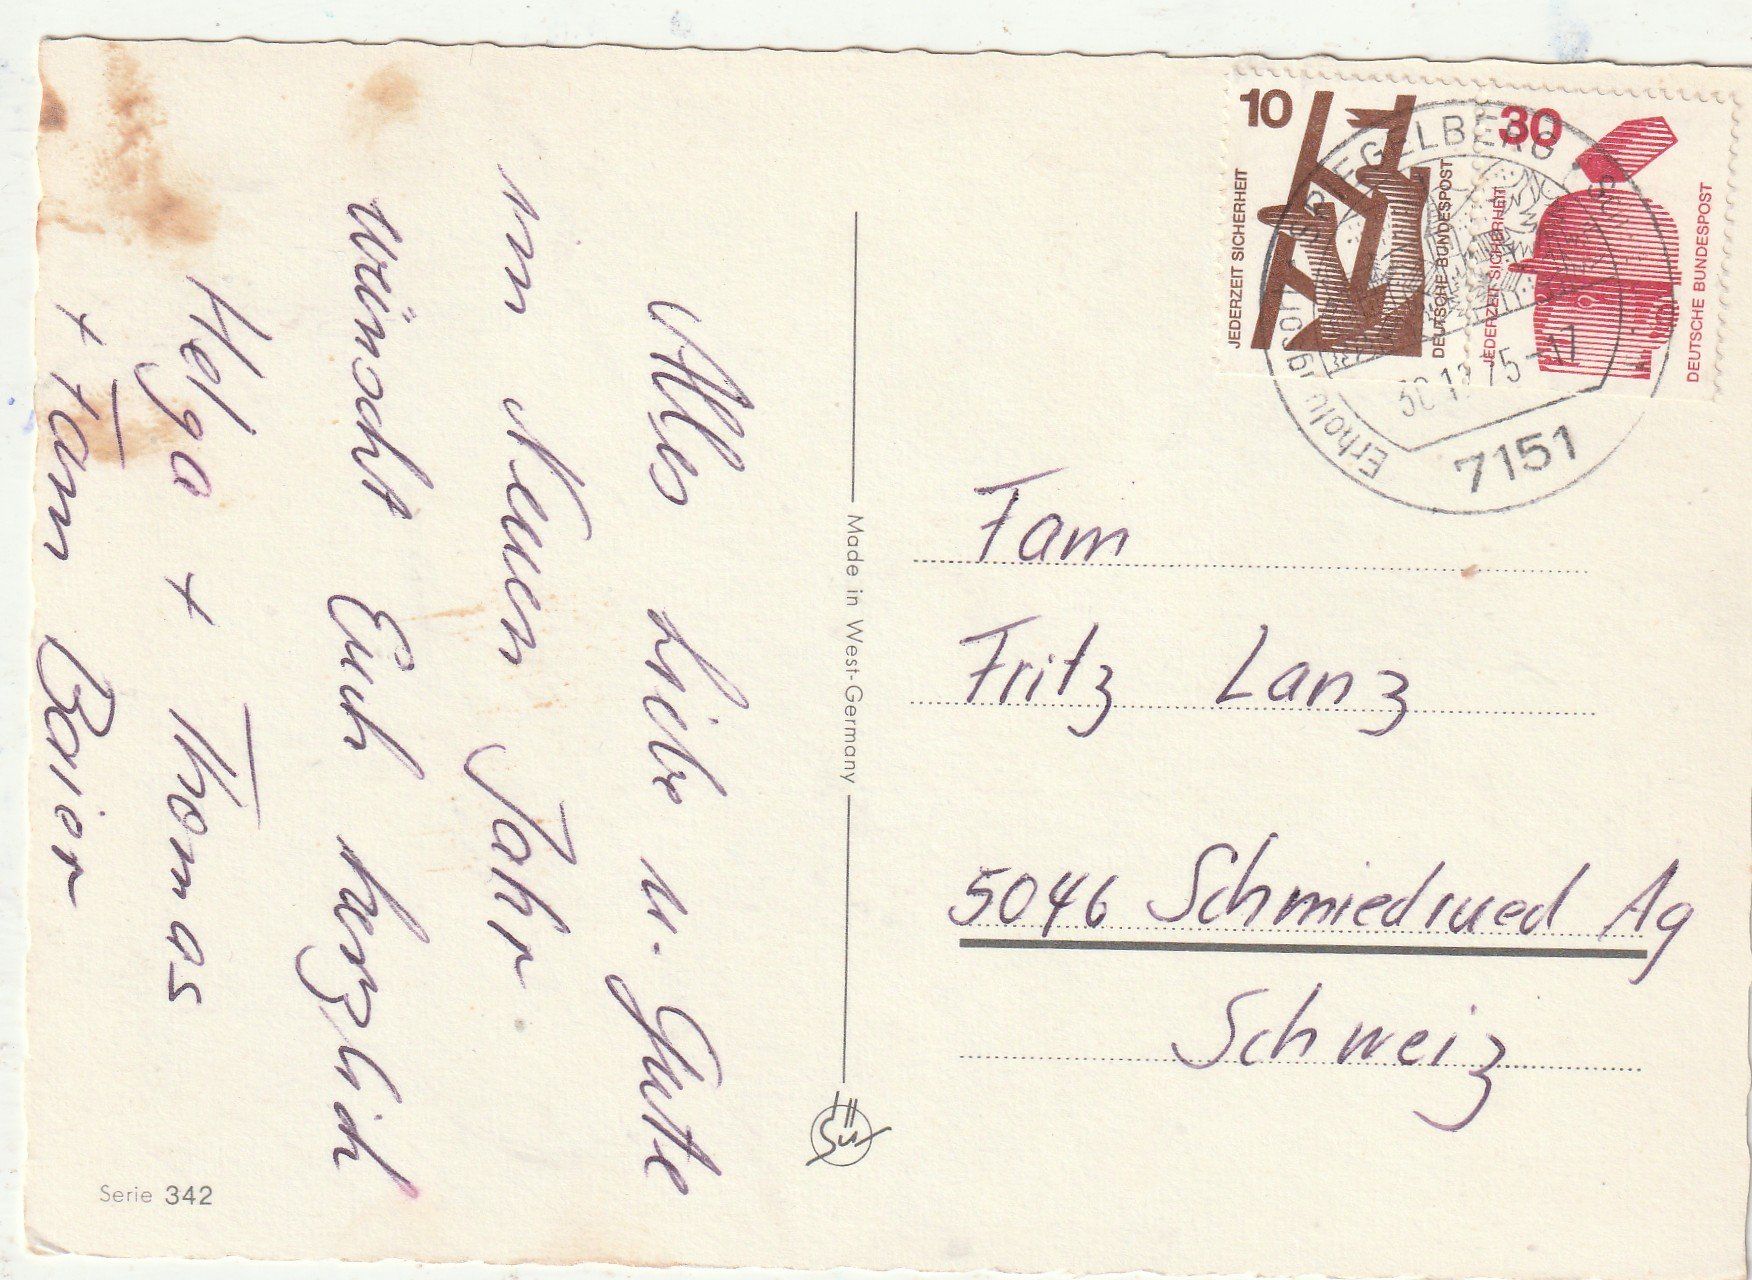 Alles Liebe u. Gute
im Neuen Jahr
wünscht Euch herzlich
Helga + Thomas
+ Fam Baier
Made in West-Germany
Serie 342
10
JEDERZEIT SICHERHEIT
DEUTSCHE BUNDESPOST
30
JEDERZEIT SICHERHEIT
DEUTSCHE BUNDESPOST
SPIEGELBERG
30.12.75-17
7151
Fam
Fritz Lanz
5046 Schmiedrued Ag
Schweiz